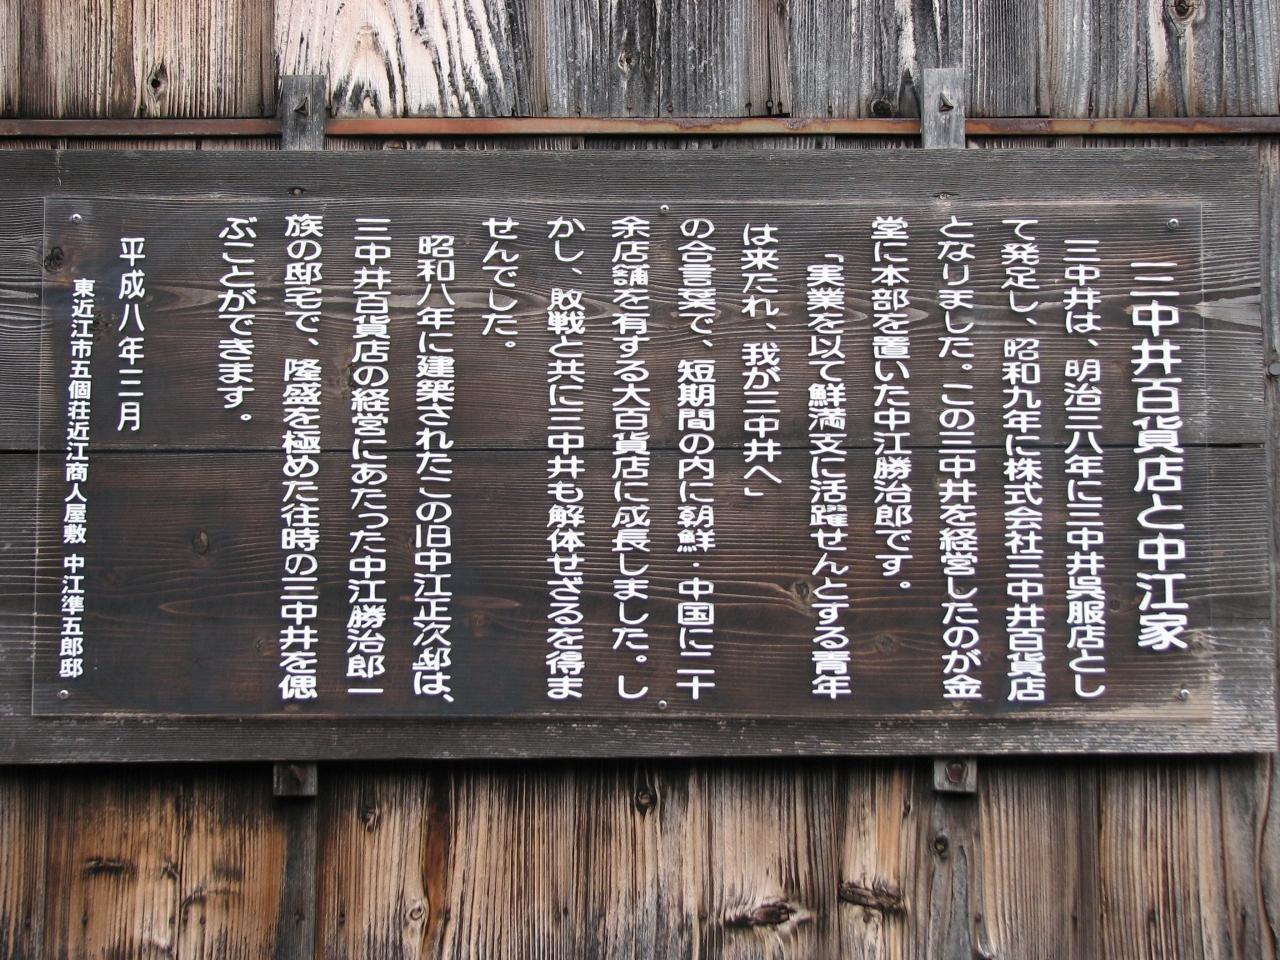 三中井百貨店と中江家
三中井は、明治三八年に三中井呉服店とし
て発足し、昭和九年に株式会社三中井百貨店
となりました。この三中井を経営したのが金
堂に本部を置いた中江勝治郎です。
「実業を以て鮮満支に活躍せんとする青年
は来たれ、我が三中井へ」
の合言葉で、短期間の内に朝鮮・中国に二十
余店舗を有する大百貨店に成長しました。し
かし、敗戦と共に三中井も解体せざるを得ま
せんでした。
昭和八年に建築されたこの旧中江正次邸は、
三中井百貨店の経営にあたった中江勝治郎一
族の邸宅で、隆盛を極めた往時の三中井を偲
ぶことができます。
平成八年三月
東近江市五個荘近江商人屋敷 中江準五郎邸